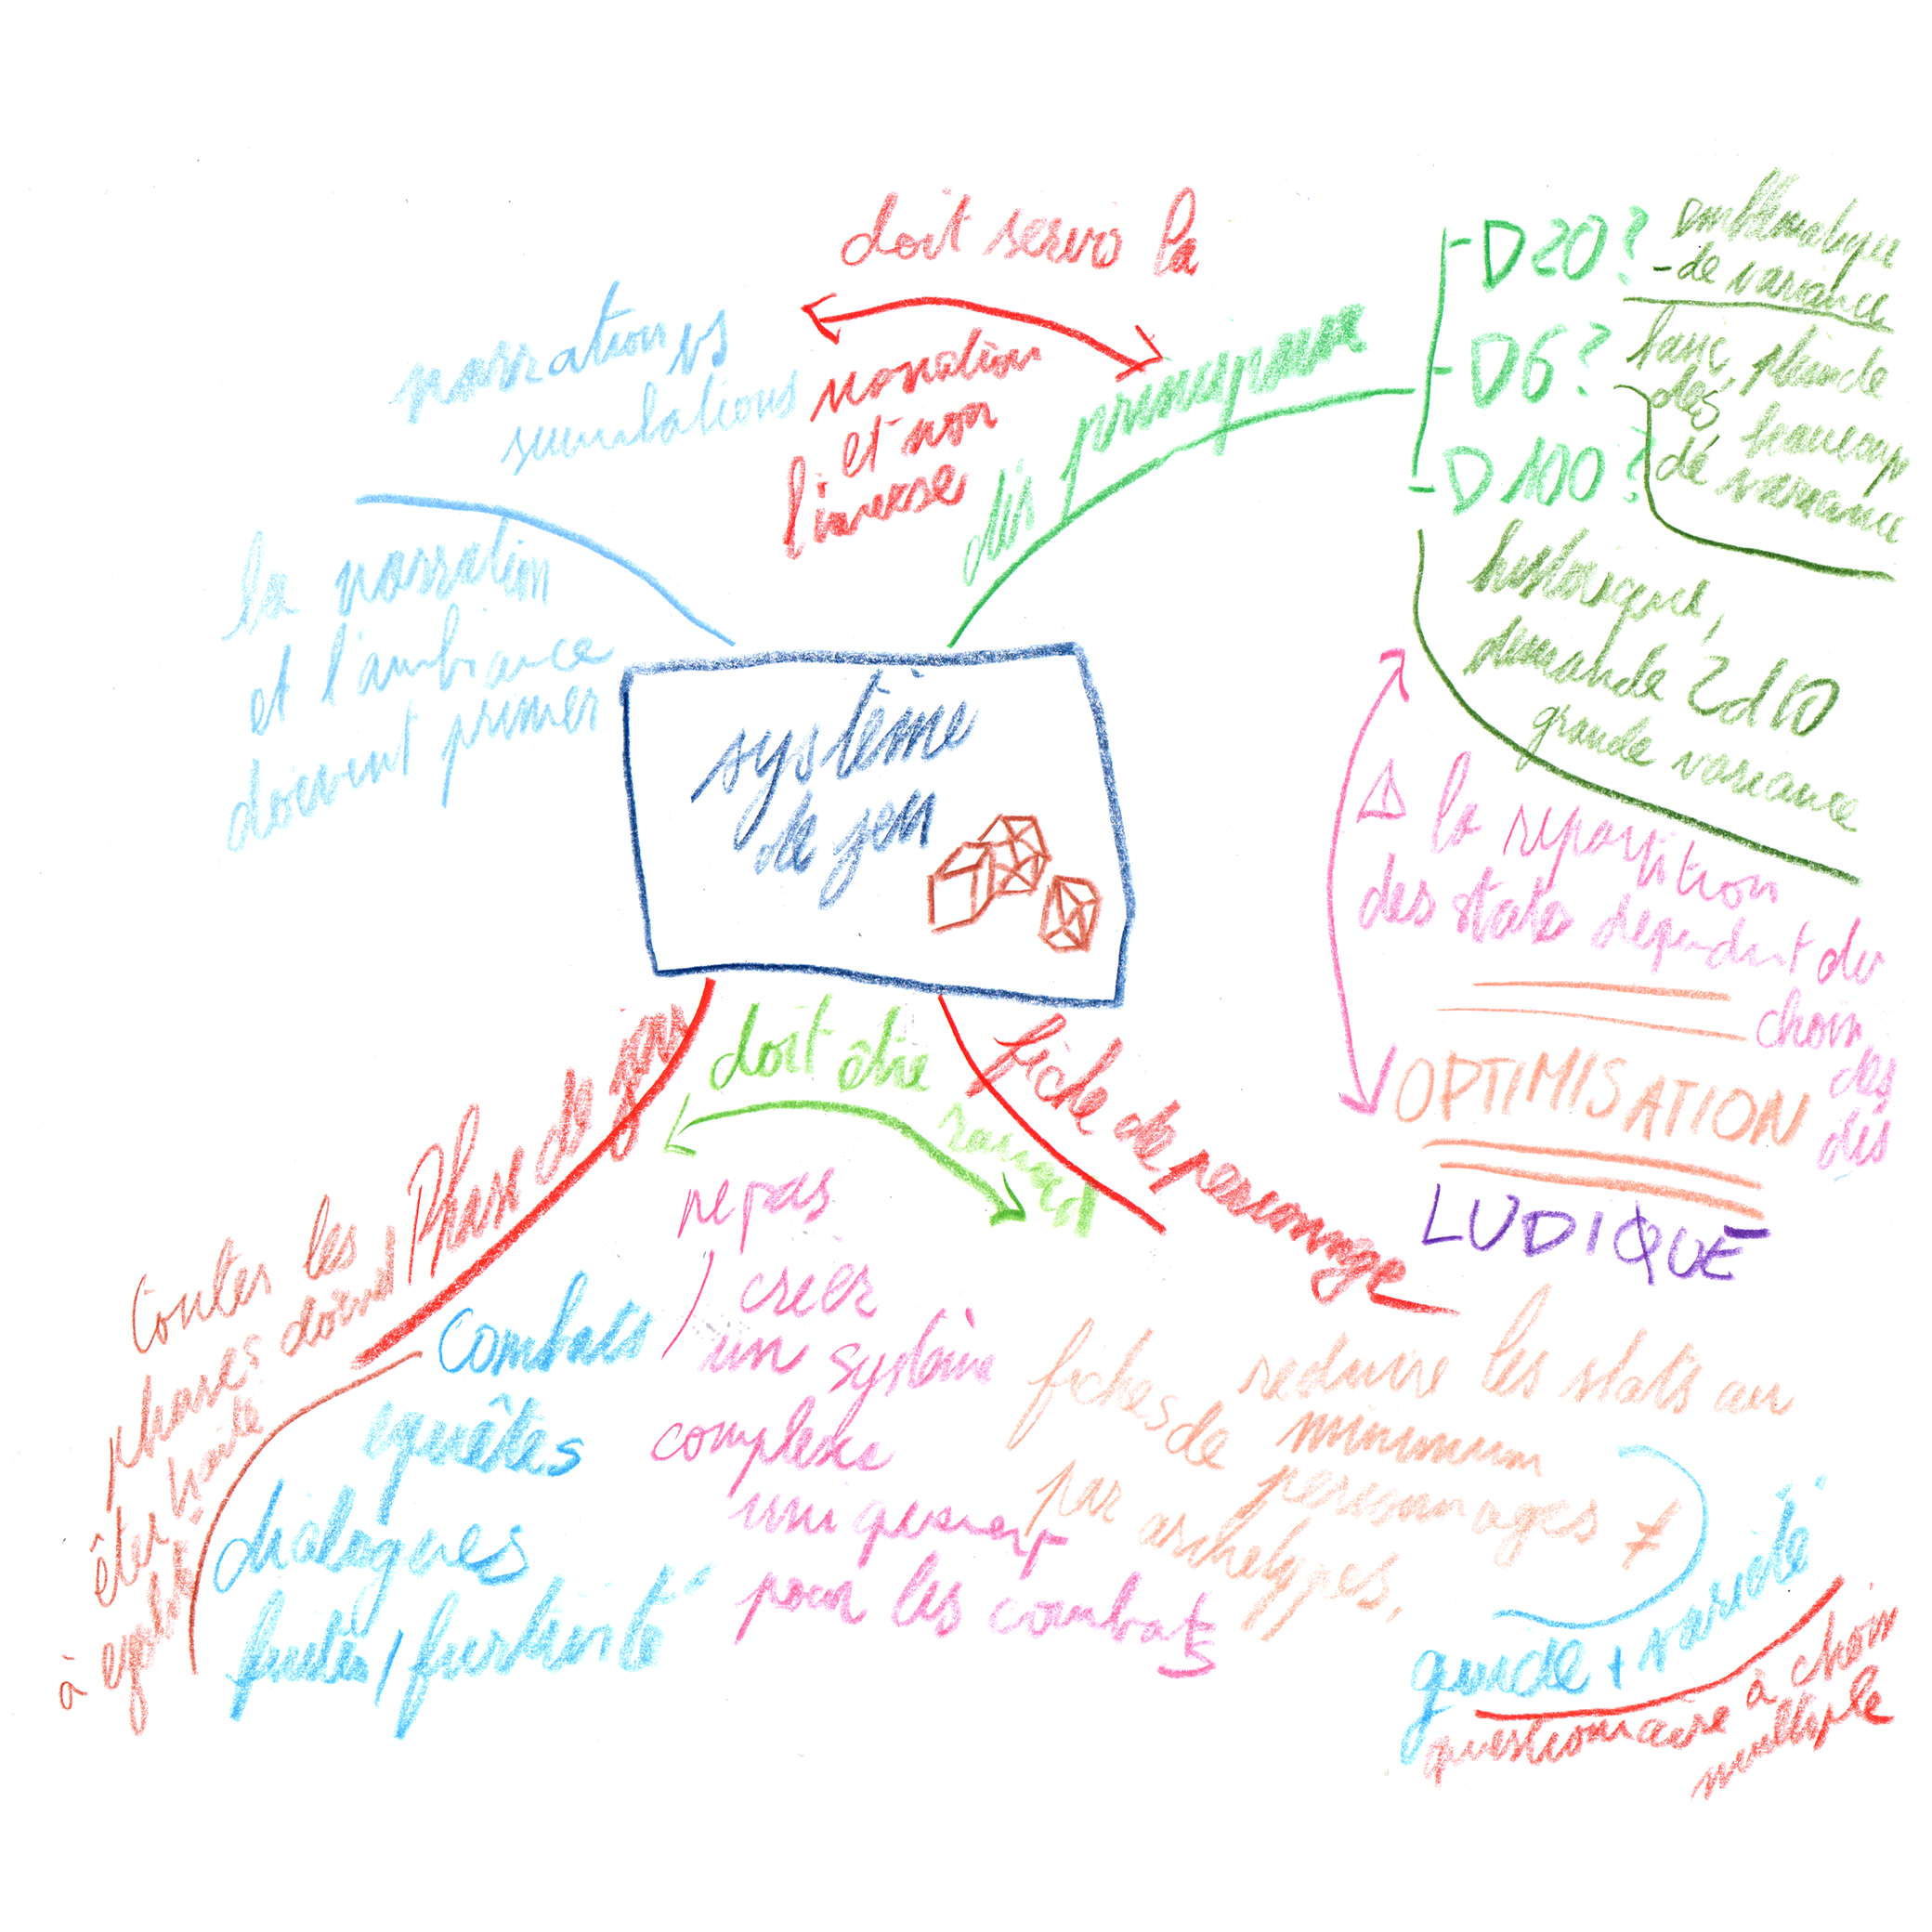 doit servir la
narration
et non
l'inverse
narration vs
simulations
la narration
et l'ambiance
doivent primer
dés principaux
- D20?
- D6?
- D100?
emblématique
- de variance
lanc
dés beaucoup
de variance
historiques,
demande 2d10
grande variance
⚠ la répartition
des stats dépendent du
choix
des
dés
OPTIMISATION
LUDIQUE
système
de jeu
Phase de jeu
toutes les
phases doivent
être traité
à égalité
combats
quêtes
dialogues
fuites / furtivité
doit être
ne pas
créer
un système
complexe
uniquement
pour les combats
fiche de personnage
reduire les stats au
minimum
fiches de personnages ≠
par archetypes,
guide + variété
questionnaire à choix
multiple